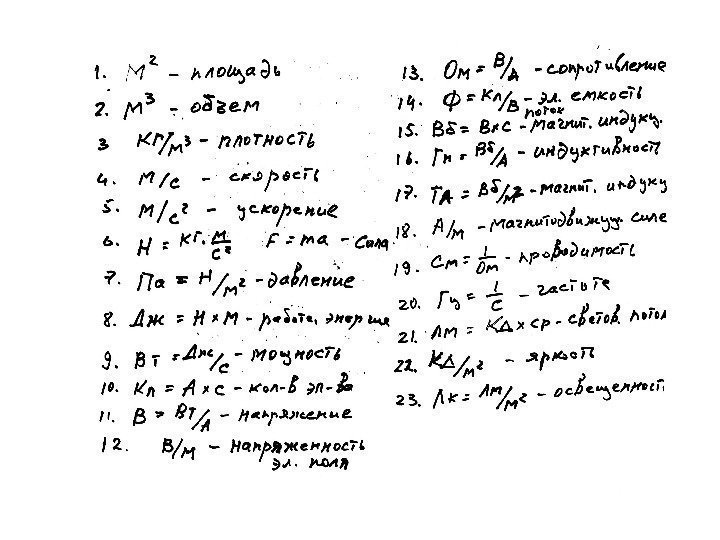 1. М² - площадь
2. М³ - обзем
3 КГ/М³ - плотность
4. М/с - скорость
5. М/с² - ускорение
6. Н = кг. М/С² F = ma - Сила
7. Па = Н/м² - давление
8. Дж = Н × М - работа, энергия
9. Вт = Дж/с - мощность
10. Кл = А × с - кол-в эл-ва
11. В = Вт/А - напряжение
12. В/м - напряженность
эл. поля
13. Ом = В/А - сопротивление
14. Ф = Кл/В - эл. емкость
поток
15. Вб = В×с - магнит. индукц.
16. Гн = Вб/А - индуктивност
17. ТЛ = Вб/м2 - магнит. индукц
18. А/м - магнитодвижущ. силе
19. См = 1/Ом - проводимость
20. Гц = 1/с - частота
21. ЛМ = КД × ср - светов. поток
22. КД/м² - яркост
23. Лк = Лм/м² - освещенност